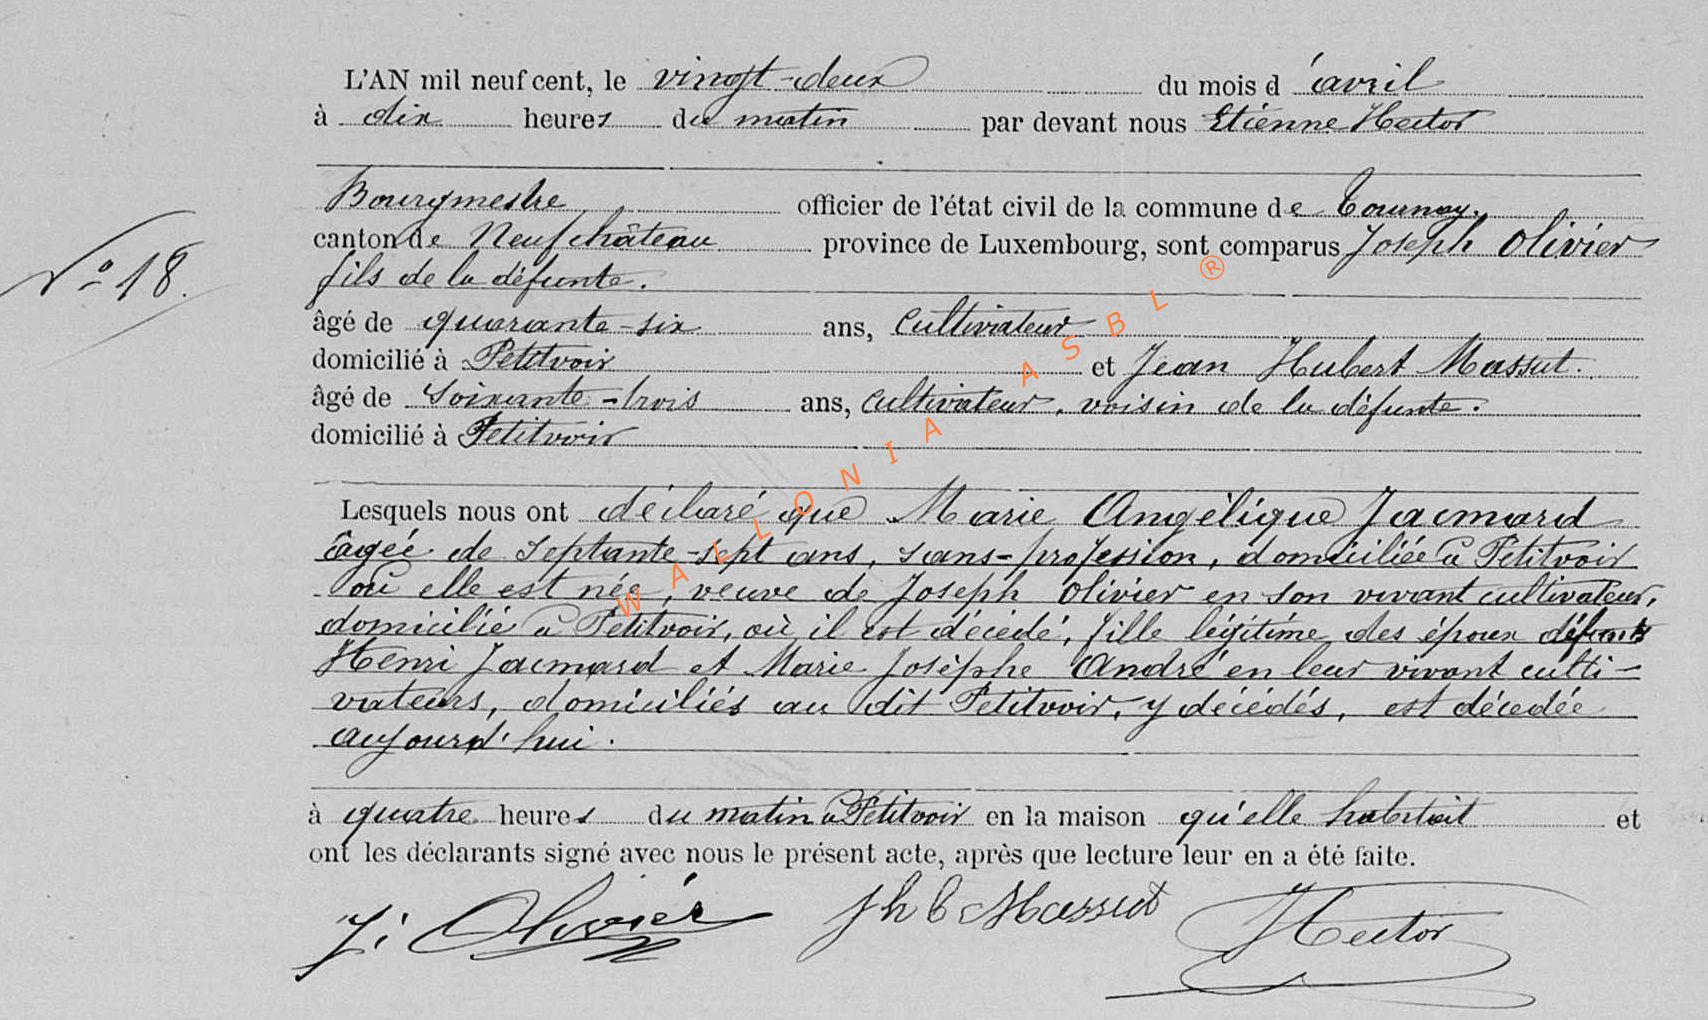 L'AN mil neuf cent, le vingt-deux du mois d'avril
à dix heures du matin par devant nous Etienne Hector
Bourgmestre officier de l'état civil de la commune de Tournay,
canton de Neufchâteau province de Luxembourg, sont comparus Joseph Olivier
fils de la défunte.
N° 18.
âgé de quarante-six ans, cultivateur
domicilié à Petitvoir et Jean Hubert Massut.
âgé de soixante-trois ans, cultivateur, voisin de la défunte.
domicilié à Petitvoir
Lesquels nous ont déclaré que Marie Angélique Jacmard
âgée de septante-sept ans, sans-profession, domiciliée à Petitvoir
où elle est née, veuve de Joseph Olivier en son vivant cultivateur,
domicilié à Petitvoir, où il est décédé, fille légitime des époux défunts
Henri Jacmard et Marie Josèphe André en leur vivant culti-
vateurs, domiciliés au dit Petitvoir, y décédés, est décédée
aujourd'hui.
à quatre heures du matin à Petitvoir en la maison qu'elle habitait et
ont les déclarants signé avec nous le présent acte, après que lecture leur en a été faite.
J: Olivier Jh b Massut Hector
WALLONIA ASBL ®